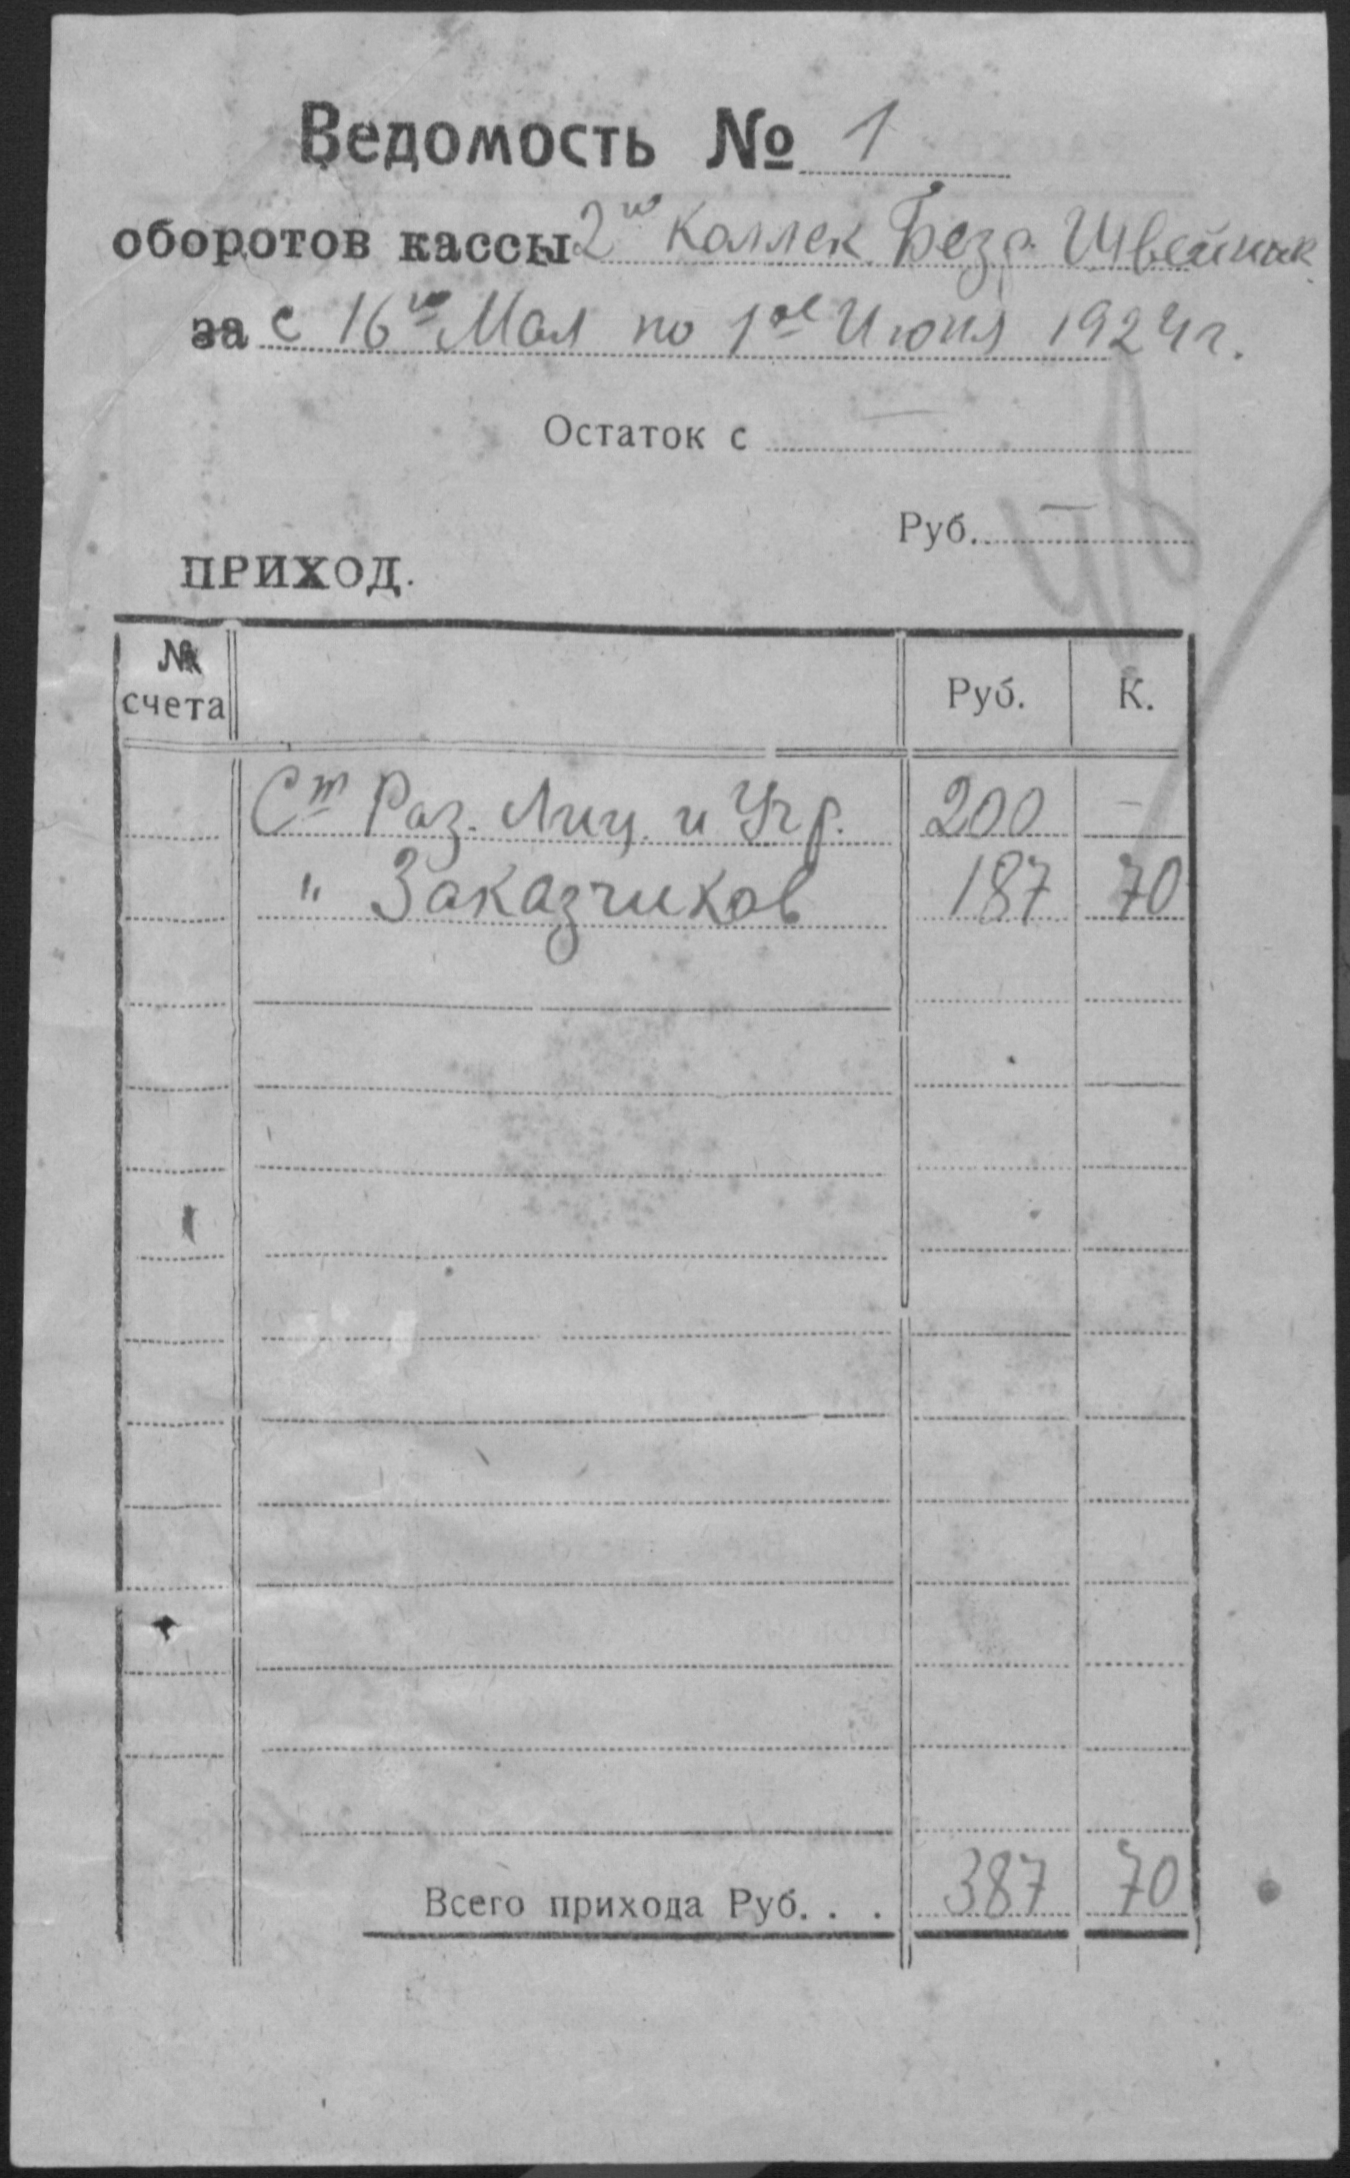 Ведомость № 1
оборотов кассы 2го Коллек. Безр. Швейник.
за с 16го Мая по 1ое Июня 1924 г.
Остаток с —
Руб. —
ПРИХОД.
№ счета Руб. К.
Ст Раз. Лиц. и Учр. 200 —
" Заказчиков 187 70
Всего прихода Руб. . . 387 70